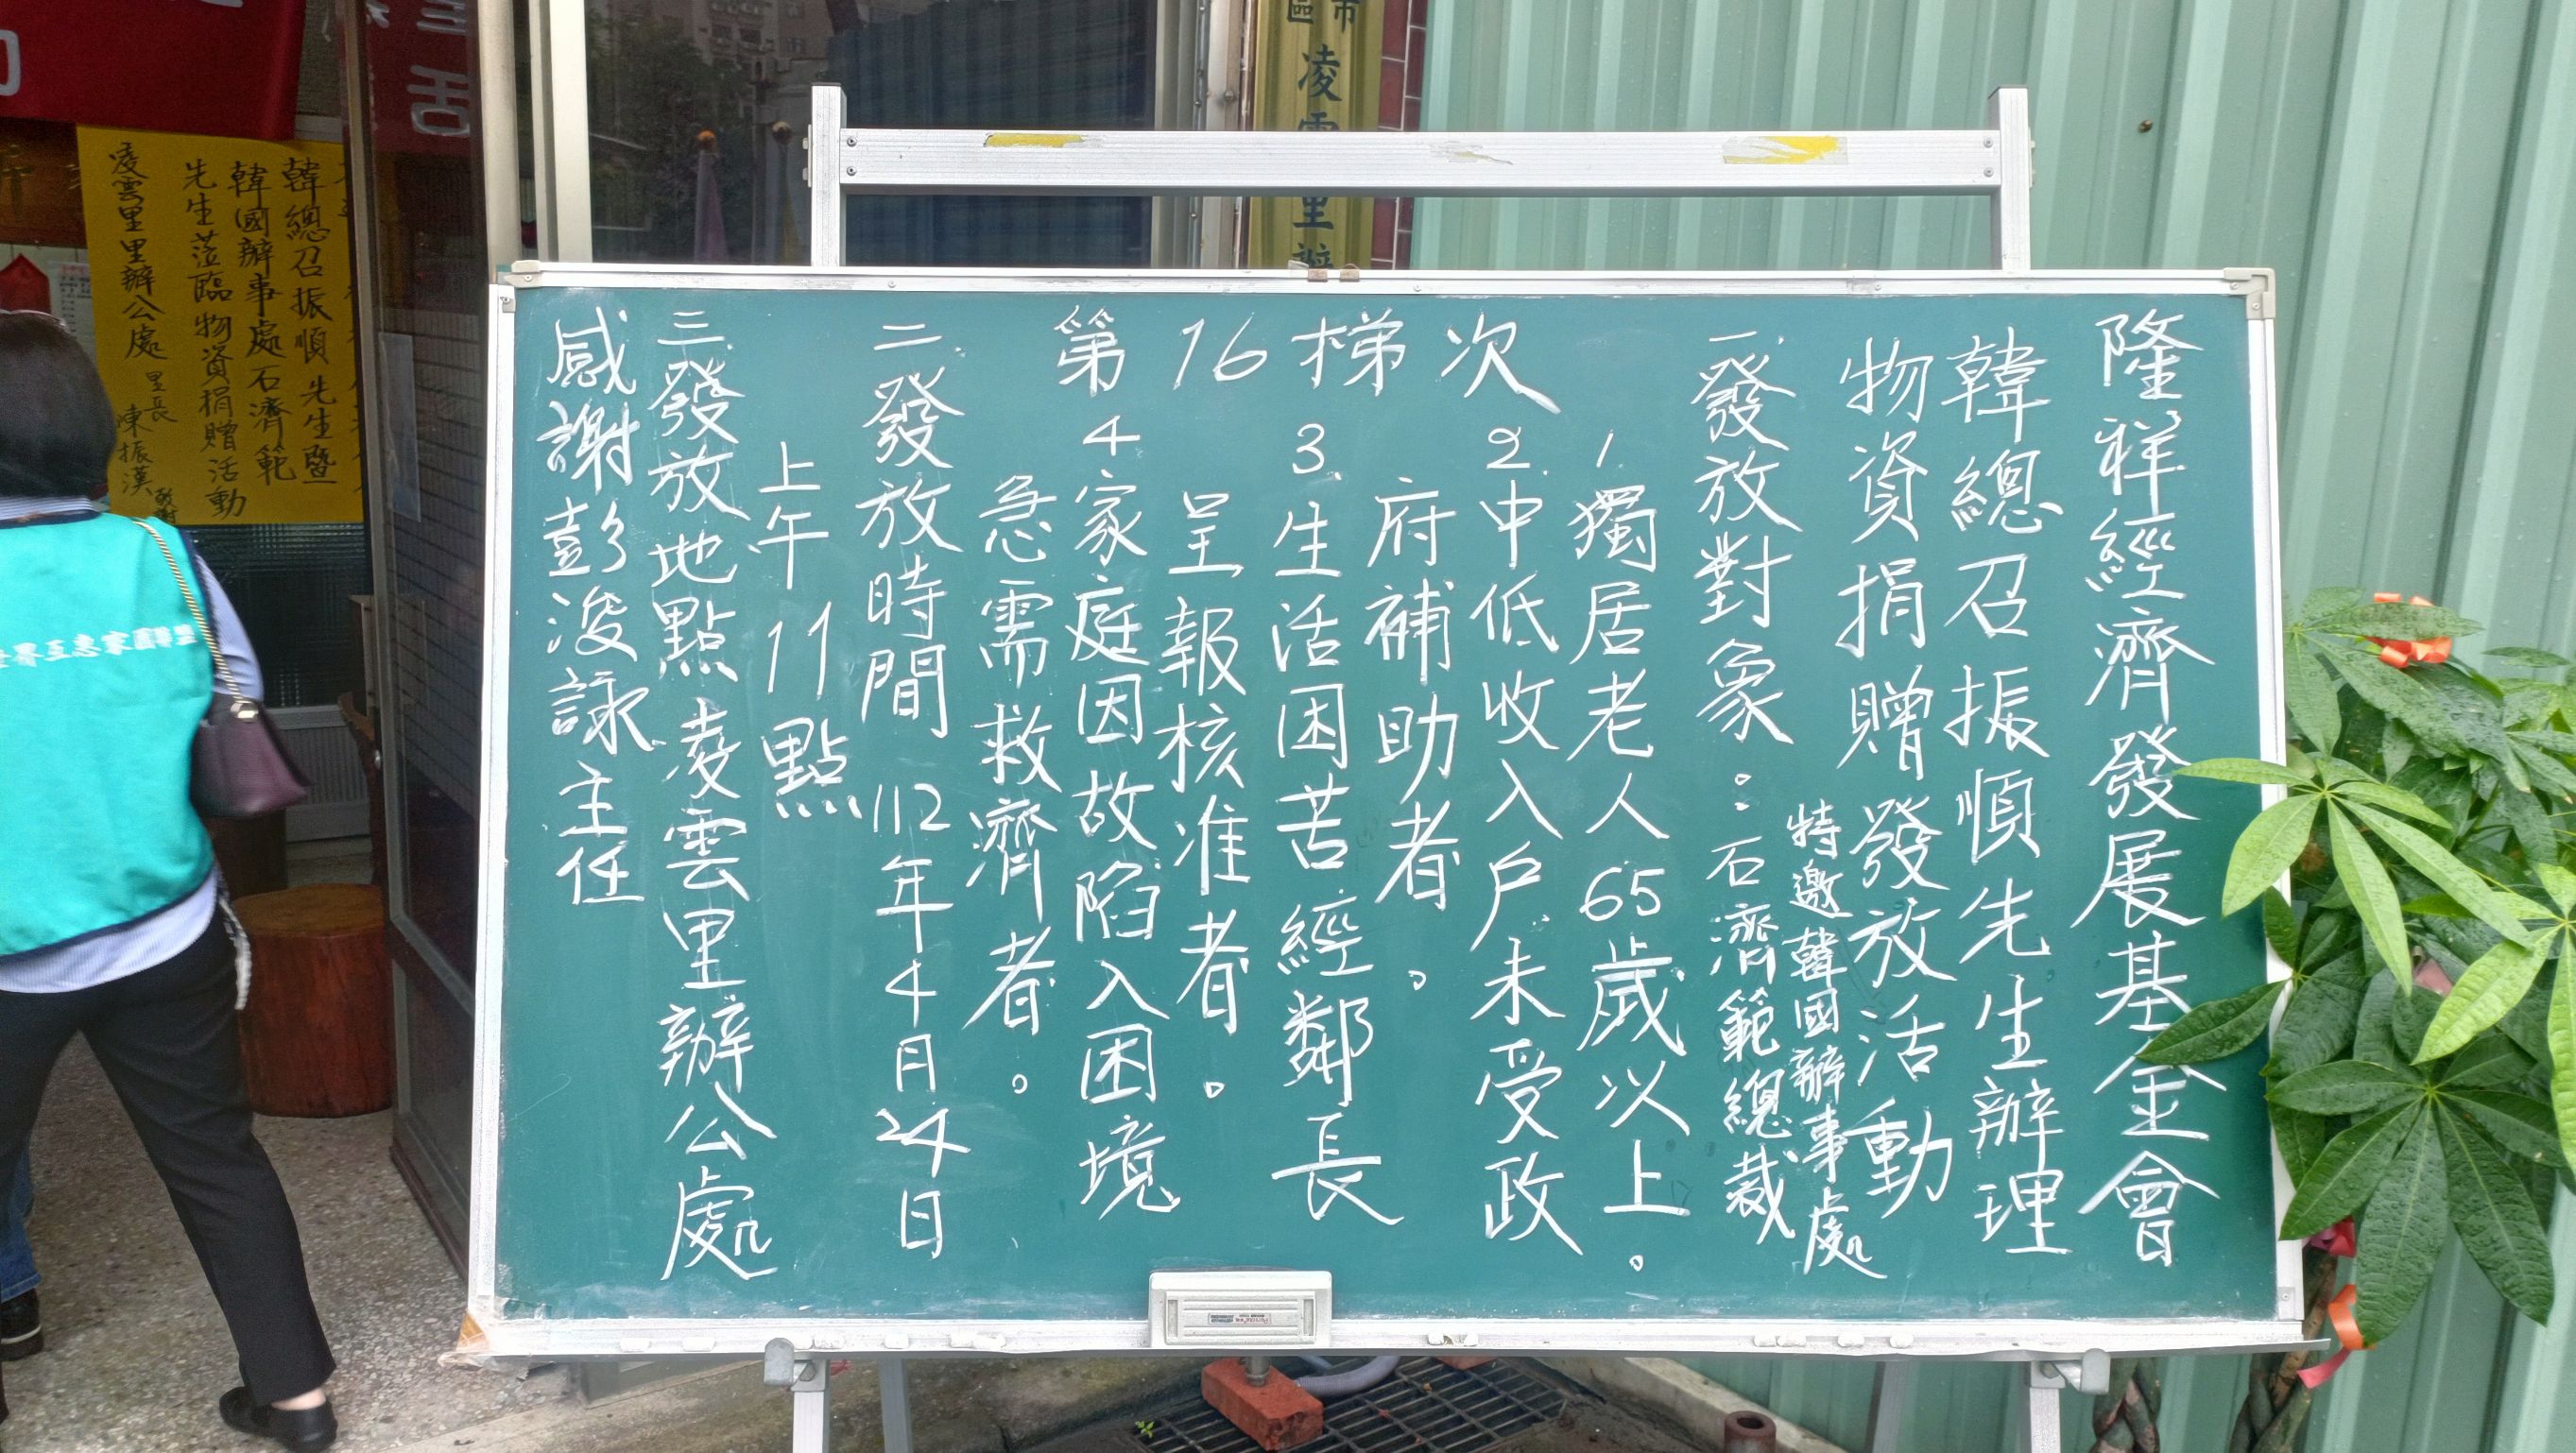 隆祥經濟發展基金會
韓總召振順先生辦理
物資捐贈發放活動
特邀韓國辦事處
石濟範總裁
一.發放對象：
1.獨居老人65歲以上。
2.中低收入戶未受政
府補助者。
3.生活困苦經鄰長
呈報核准者。
4家庭因故陷入困境
急需救濟者。
第16梯次
二.發放時間 112年4月24日
上午11點
三.發放地點凌雲里辦公處
感謝彭浚詠主任
韓總召振順先生暨
韓國辦事處石濟範
先生蒞臨物資捐贈活動
凌雲里里辦公處 里長 陳振漢 敬謝
市
區
凌雲里辦
活